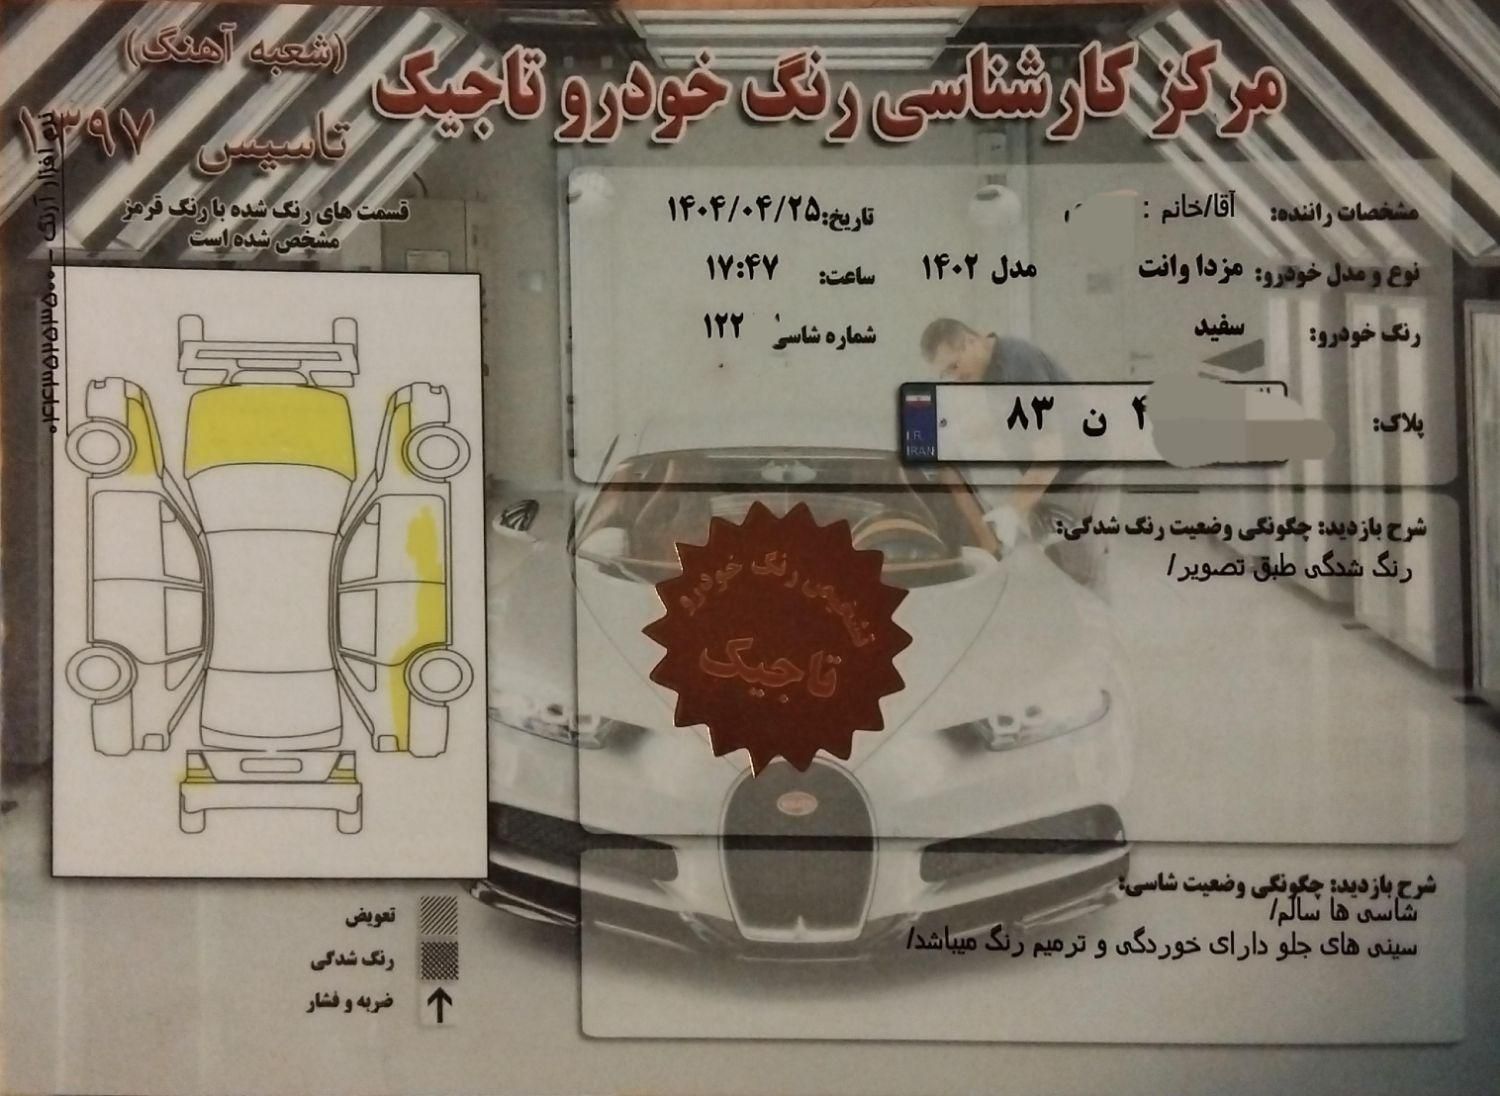 مرکز کارشناسی رنگ خودرو تاجیک
(شعبه آهنگ)
تاسیس ۱۳۹۷
مشخصات راننده: آقا/خانم :
تاریخ: ۱۴۰۴/۰۴/۲۵
نوع و مدل خودرو: مزدا وانت مدل ۱۴۰۲
ساعت: ۱۷:۴۷
رنگ خودرو: سفید
شماره شاسی ۱۲۲
پلاک:
۸۳ ن ۴
I.R.
IRAN
شرح بازدید: چگونگی وضعیت رنگ شدگی:
رنگ شدگی طبق تصویر/
تشخیص رنگ خودرو
تاجیک
شرح بازدید: چگونگی وضعیت شاسی:
شاسی ها سالم/
سینی های جلو دارای خوردگی و ترمیم رنگ میباشد/
قسمت های رنگ شده با رنگ قرمز
مشخص شده است
تعویض
رنگ شدگی
ضربه و فشار
نرم افزار آرنگ - ۰۴۴۳۵۲۵۳۵۰۰